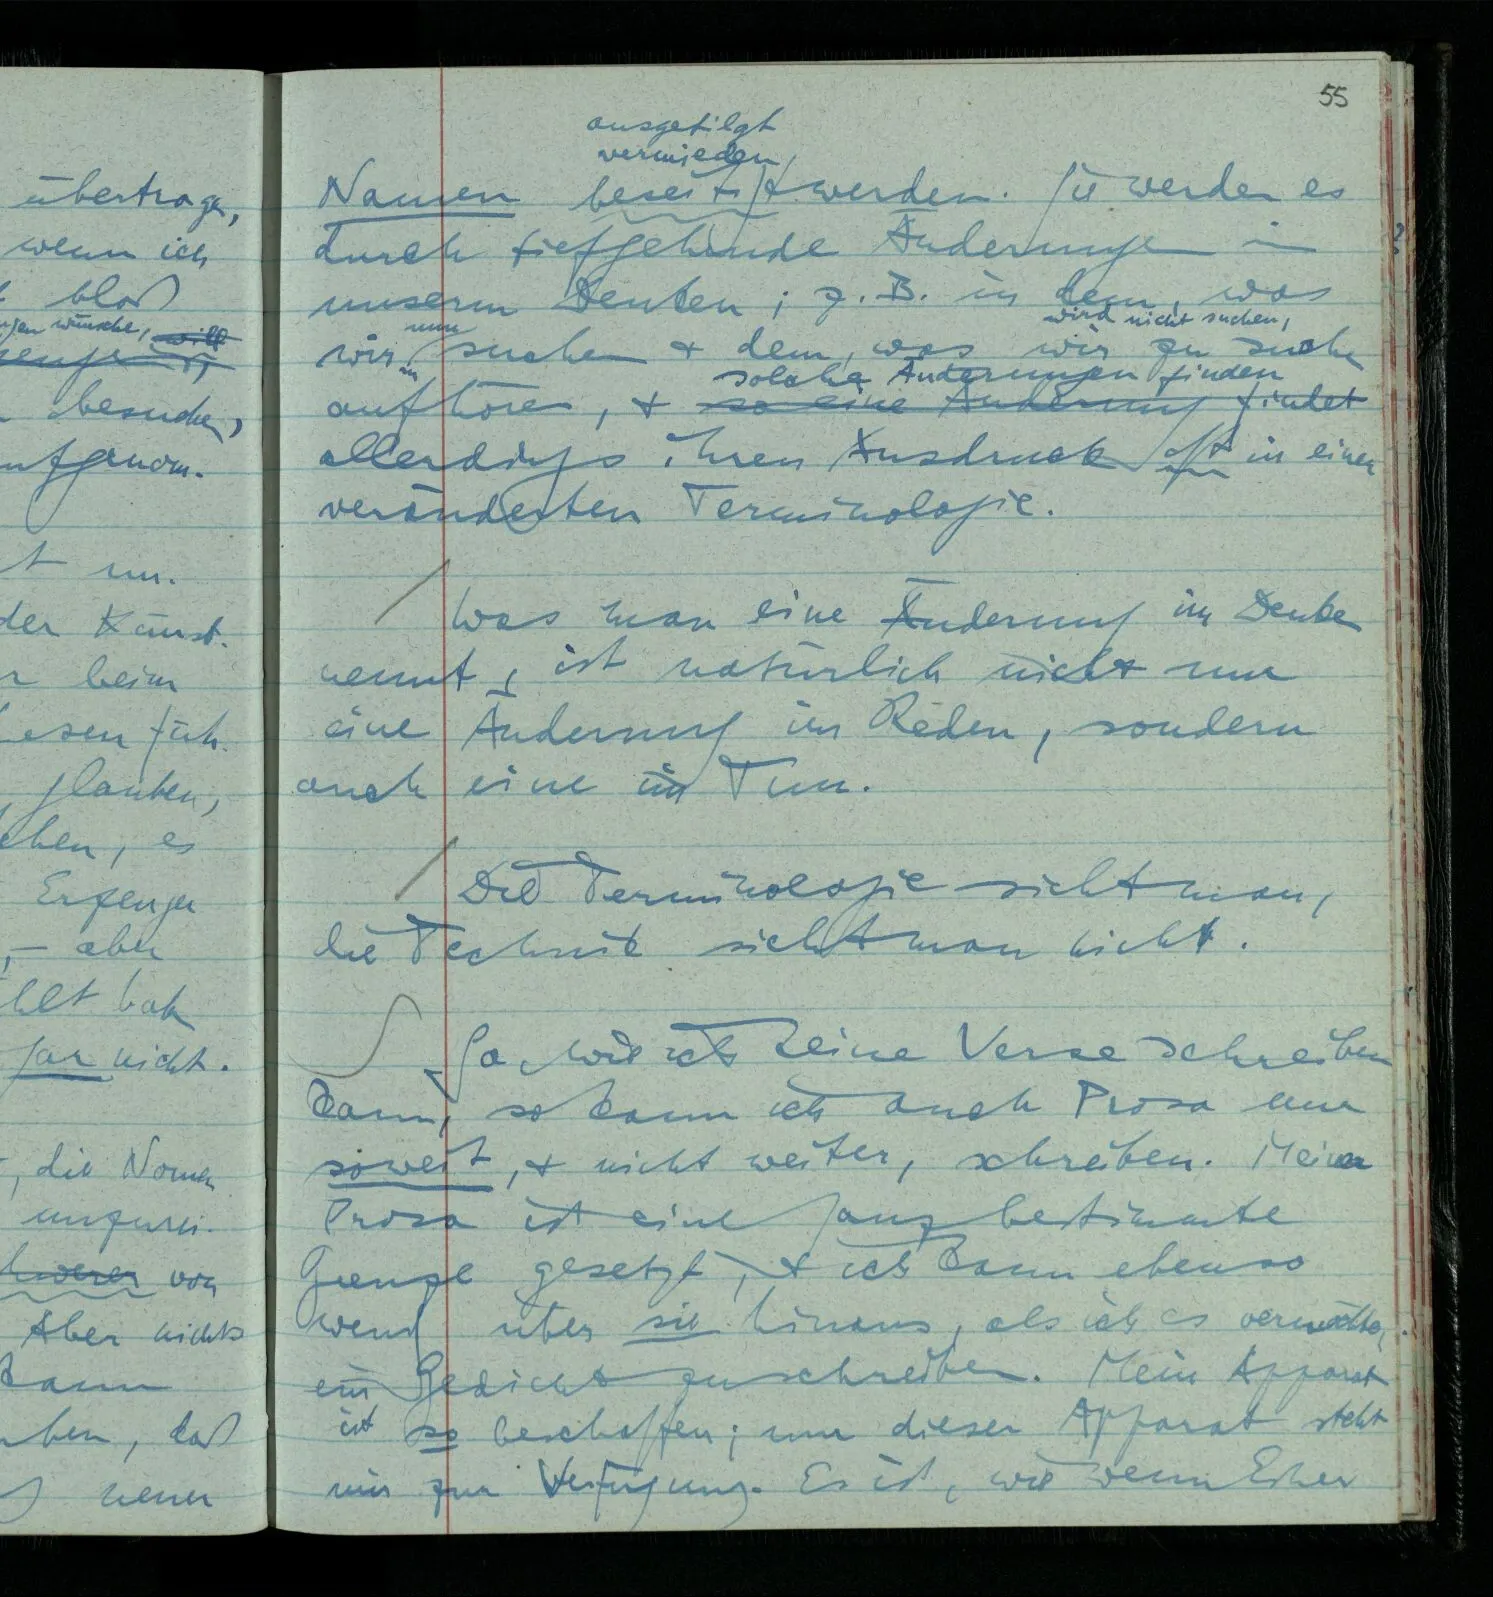 übertrage,
wenn ich
bloß
wünsche, will
besuchen,
aufgenom-
nur.
der Kunst-
beim
Lesen füh-
glauben,
es
Erzeuger
– aber
hat
gar nicht.
, die Namen
unzurei-
von
Aber nichts
kann
, daß
neuer
55
ausgetilgt
vermieden
Namen beseitigt werden. Sie werden es
durch tiefgehende Änderungen in
unserm Denken; z.B. in dem, was
nun
wird nicht suchen,
wir suchen & dem, was wir zu suchen
solche Änderungen finden
aufhören, & so eine Änderung findet
allerdings ihren Ausdruck oft in einer
veränderten Terminologie.
Was man eine Änderung im Denken
nennt, ist natürlich nicht nur
eine Änderung im Reden, sondern
auch eine im Tun.
Die Terminologie sieht man,
die Technik sieht man nicht.
So wie ich keine Verse schreiben
kann, so kann ich auch Prosa nur
soweit, & nicht weiter, schreiben. Meiner
Prosa ist eine ganz bestimmte
Grenze gesetzt, & ich kann ebenso
wenig über sie hinaus, als ich es vermöchte,
ein Gedicht zu schreiben. Mein Apparat
ist so beschaffen; nur dieser Apparat steht
mir zur Verfügung. Es ist, wie wenn Einer